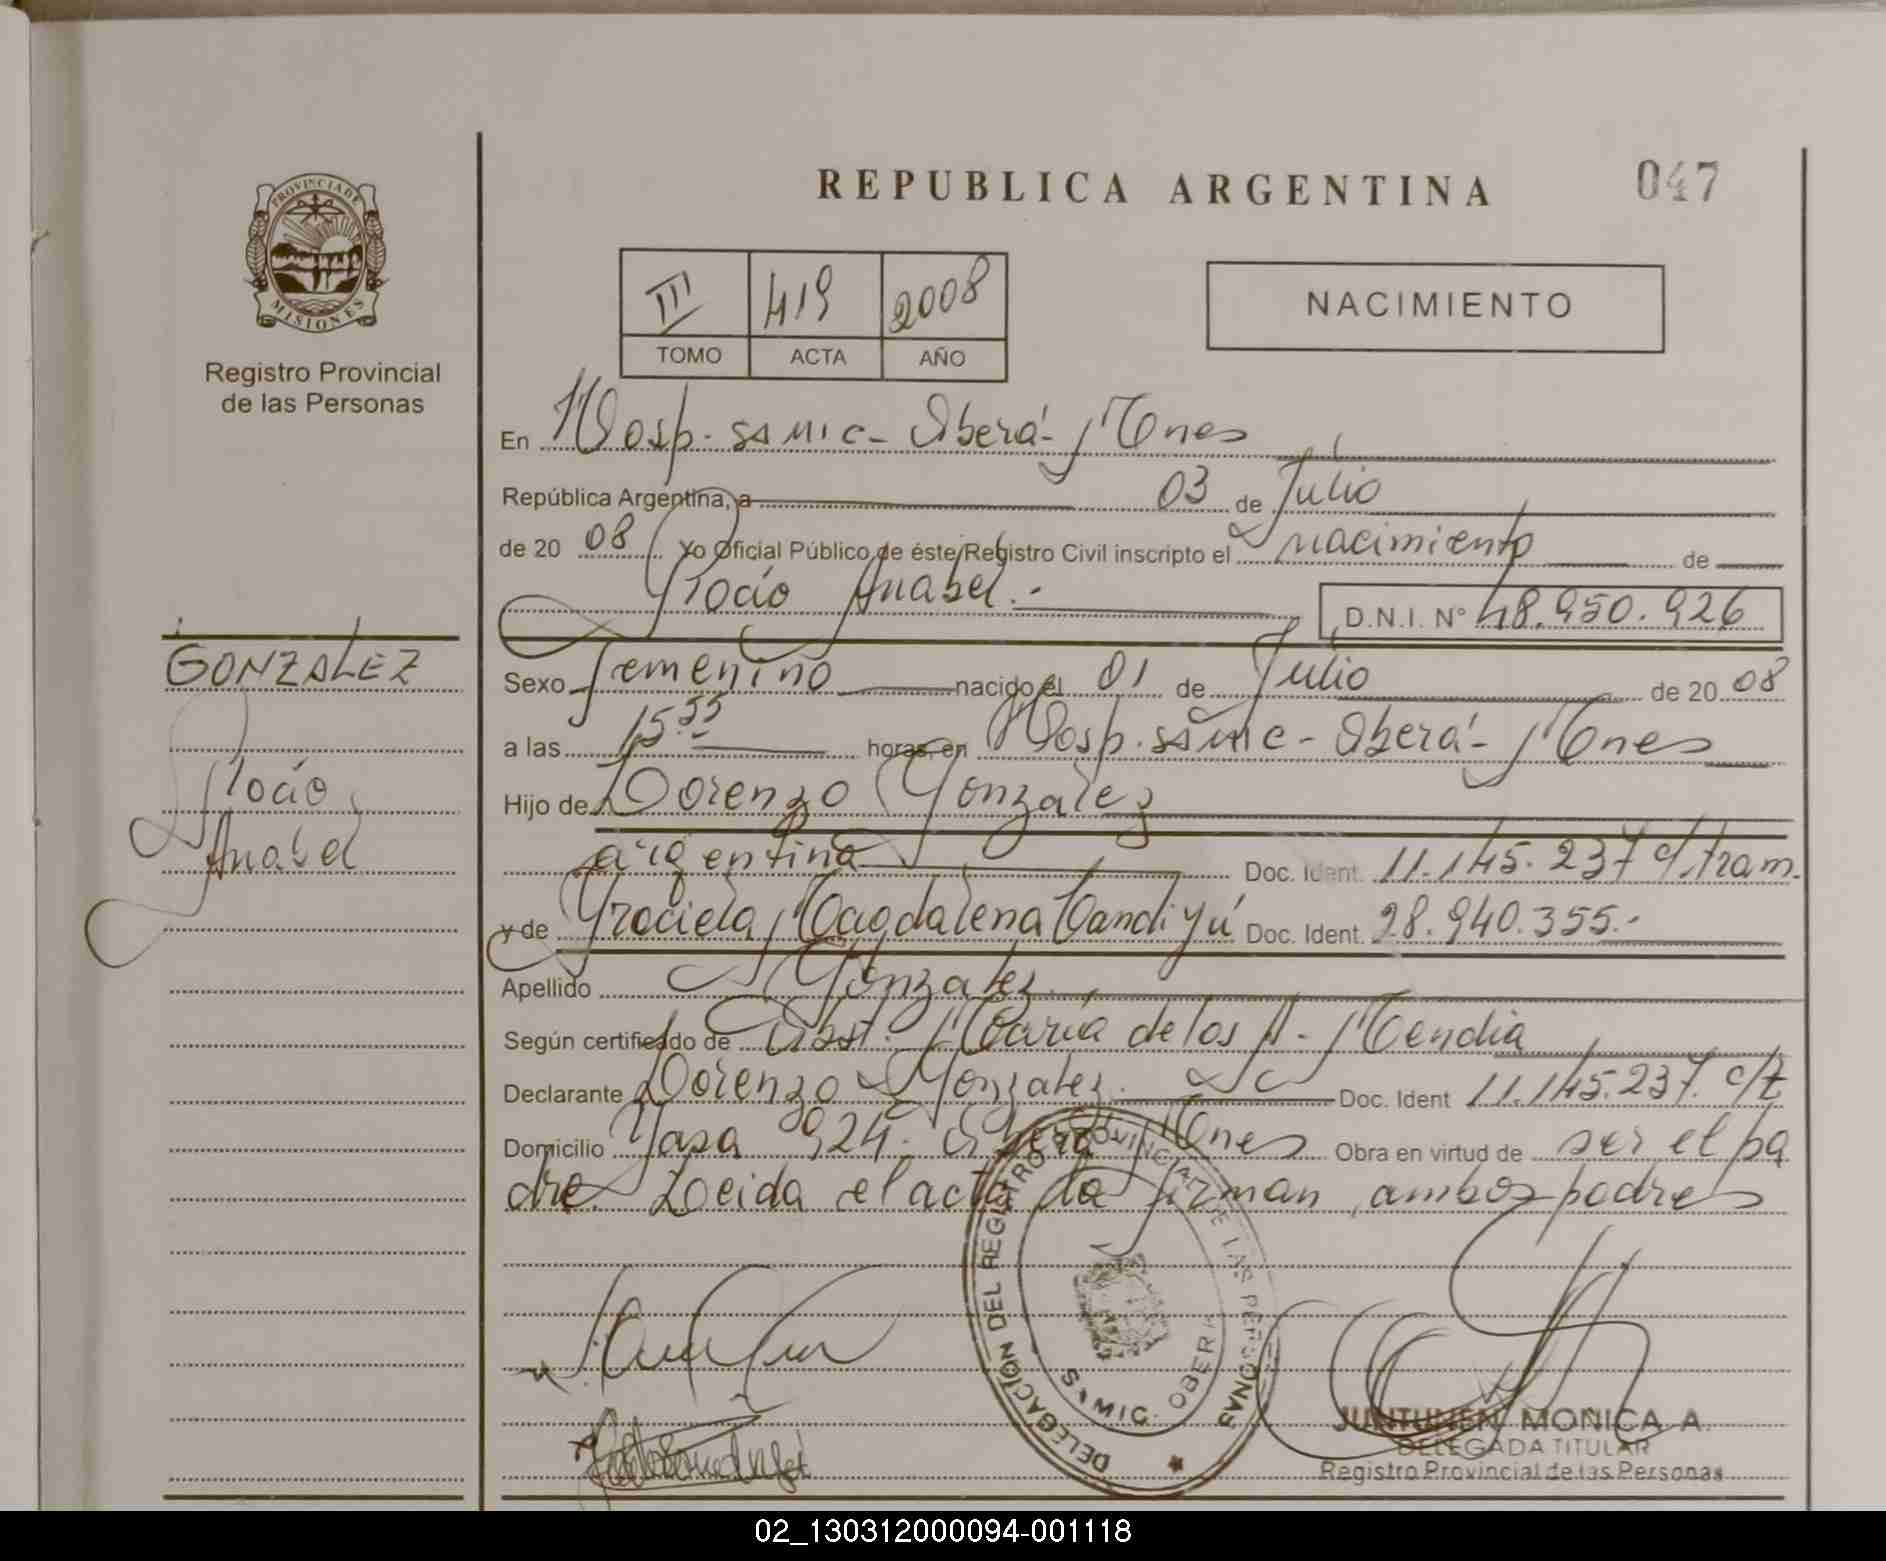 REPUBLICA ARGENTINA
047
PROVINCIA DE
MISIONES
Registro Provincial
de las Personas
III 419 2008
TOMO ACTA AÑO
NACIMIENTO
En Hosp. SAMIC - Oberá - Mnes
República Argentina, a 03 de Julio
de 20 08 Yo Oficial Público de éste Registro Civil inscripto el nacimiento de
Rocío Anabel.-
D.N.I. Nº 48.950.926
GONZALEZ
Rocío
Anabel
Sexo femenino nacido el 01 de Julio de 20 08
a las 15.55 horas, en Hosp. SAMIC - Oberá - Mnes
Hijo de Lorenzo Gonzalez
argentina Doc. Ident. 11.145.237 c/tram.
y de Graciela Magdalena Mandiyú Doc. Ident. 28.940.355.-
Apellido Gonzalez
Según certificado de Obst. María de los A. Mendia
Declarante Lorenzo Gonzalez. Doc. Ident 11.145.237. c/t
Domicilio Yasa 924. Oberá Mnes Obra en virtud de ser el pa
dre. Leida el acta la firman ambos padres
DELEGACIÓN DEL REGISTRO PROVINCIAL DE LAS PERSONAS
SAMIC OBERA
JUNTUNEN MONICA A.
DELEGADA TITULAR
Registro Provincial de las Personas
02_130312000094-001118